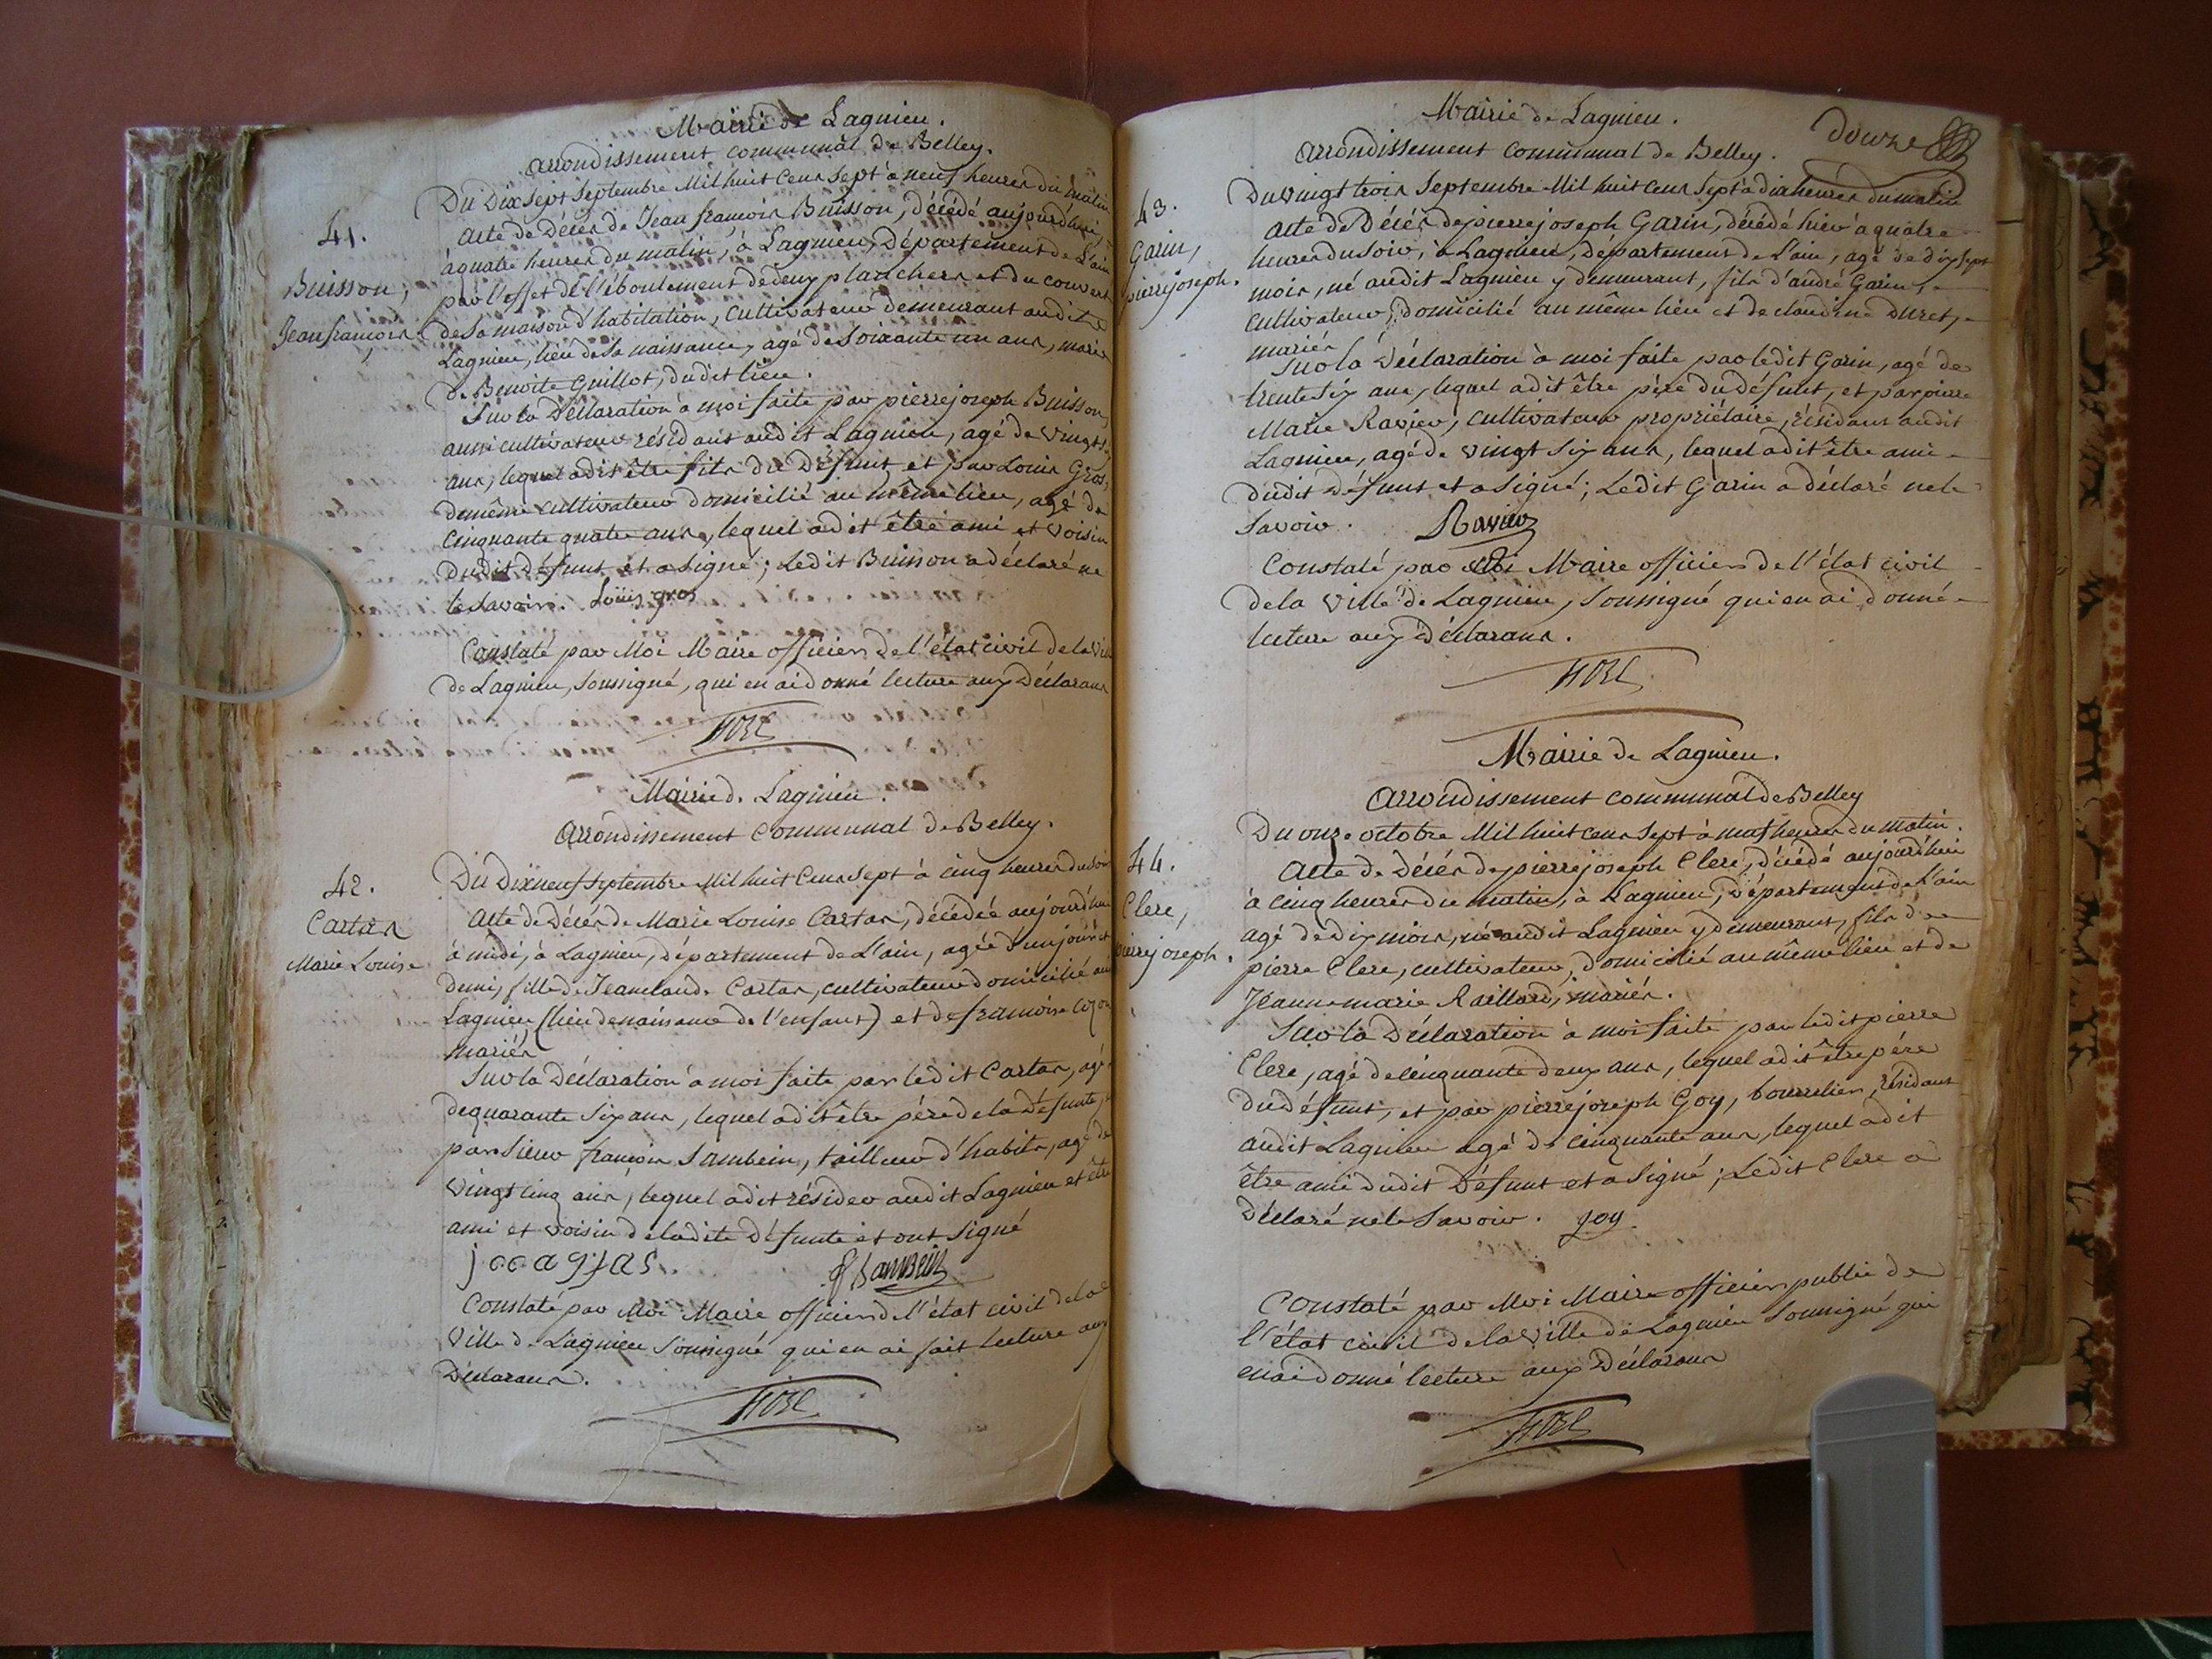 Mairie de Lagnieu.
arrondissement communal de Belley.
41.
Buisson,
Jean francois
Du Dix Sept Septembre Mil huit Cens Sept à neuf heures du matin
Acte de Décès de Jean francois Buisson, décédé aujourd'hui,
à quatre heures du matin, à Lagnieu, Département de l'ain
par l'effet de l'éboulement de deux planchers et du couvert
de sa maison d'habitation, Cultivateur demeurant audit
Lagnieu, lieu de sa naissance, agé de soixante un ans, marié
à Benoite Guillot, dudit lieu.
Sur la Déclaration à moi faite par pierre joseph Buisson,
aussi cultivateur résidant audit Lagnieu, agé de vingt
ans, lequel a dit être fils du Défunt et par Louis Gros,
de même cultivateur domicilié au même lieu, agé de
Cinquante quatre ans, lequel a dit être ami et voisin
dudit Défunt et a signé ; ledit Buisson a déclaré ne
le savoir. Louis gros
Constaté par Moi Maire officier de l'état civil de la Ville
de Lagnieu, soussigné, qui en ai donné lecture aux Déclarans
Mairie de Lagnieu.
Arrondissement Communal de Belley.
42.
Cartas
Marie Louise
Du Dix neuf Septembre Mil huit Cens Sept à cinq heures du soir
Acte de Décès de Marie Louise Cartas, décédée aujourd'hui
à midi, à Lagnieu, département de L'ain, agée d'un jour et
demi, fille de Jean claude Cartas, cultivateur domicilié audit
Lagnieu (lieu de naissance de l'enfant) et de francoise
mariés
Sur la Déclaration à moi faite par ledit Cartas, agé
de quarante six ans, lequel a dit être père de la Défunte, et
par Sieur francois Sambein, tailleur d'habits, agé de
Vingt cinq ans, lequel a dit résider audit Lagnieu et être
ami et voisin de ladite Défunte et ont signé
Constaté par Moi Maire officier de l'état civil de la
Ville de Lagnieu soussigné qui en ai fait lecture aux
Déclarans.
Mairie de Lagnieu.
Arrondissement Communal de Belley.
douze
43.
Garin,
pierre joseph.
Du vingt trois Septembre Mil huit cens Sept à dix heures du matin
Acte de Décès de pierre joseph Garin, décédé hier à quatre
heures du soir, à Lagnieu, département de l'ain, agé de dix sept
mois, né audit Lagnieu y demeurant, fils d'andré Garin,
cultivateur, domicilié au même lieu et de claudine Duret,
mariés
Sur la Déclaration à moi faite par ledit Garin, agé de
trente six ans, lequel a dit être père du défunt, et par pierre
Marie Ravier, cultivateur propriétaire, résidant audit
Lagnieu, agé de vingt six ans, lequel a dit être ami
dudit défunt et a signé ; Ledit Garin a déclaré ne le
savoir. Ravier
Constaté par Moi Maire officier de l'état civil
de la Ville de Lagnieu, soussigné qui en ai donné
lecture aux déclarans.
Mairie de Lagnieu.
Arrondissement communal de Belley
44.
Clerc,
pierre joseph.
Du onze octobre Mil huit cens Sept à neuf heures du matin.
Acte de Décès de pierre joseph Clerc, décédé aujourd'hui
à cinq heures du matin, à Lagnieu, Département de l'ain
agé de dix mois, né audit Lagnieu y demeurant, fils de
pierre Clerc, cultivateur, domicilié au même lieu et de
Jeanne marie Raillard, mariés.
Sur la Déclaration à moi faite par ledit pierre
Clerc, agé de cinquante deux ans, lequel a dit être père
du défunt, et par pierre joseph Goy, bourrelier, résidant
audit Lagnieu agé de cinquante ans, lequel a dit
être ami dudit Défunt et a signé ; Ledit Clerc a
Déclaré ne le savoir. goy
Constaté par Moi Maire officier public de
l'état civil de la Ville de Lagnieu soussigné qui
en ai donné lecture aux Déclarans